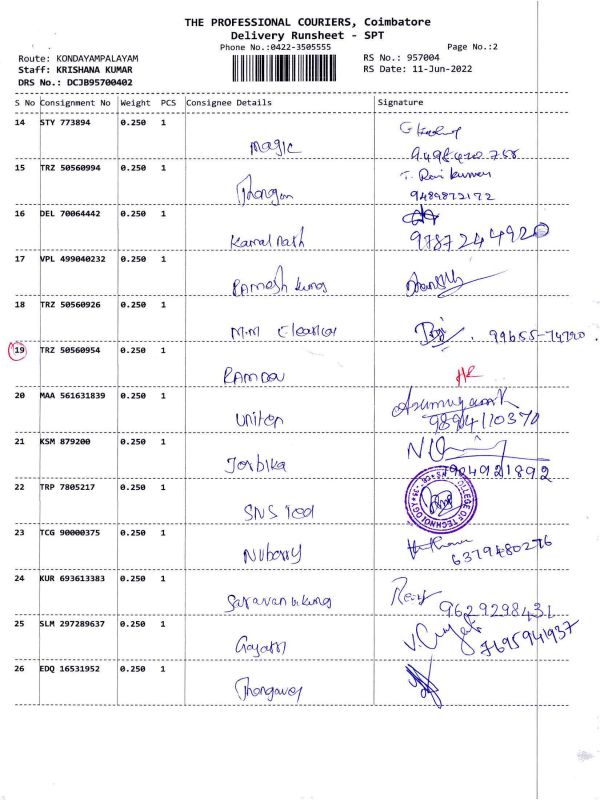 THE PROFESSIONAL COURIERS, Coimbatore
Delivery Runsheet - SPT
Phone No.:0422-3505555 Page No.:2
Route: KONDAYAMPALAYAM RS No.: 957004
Staff: KRISHANA KUMAR RS Date: 11-Jun-2022
DRS No.: DCJB95700402
S No Consignment No Weight PCS Consignee Details Signature
14 STY 773894 0.250 1
magic
15 TRZ 50560994 0.250 1 T. Ravi kumar
9489872172
16 DEL 70064442 0.250 1
Kamal nath 9787244920
17 VPL 499040232 0.250 1
Ramesh kumar
18 TRZ 50560926 0.250 1
99655-74720
19 TRZ 50560954 0.250 1
20 MAA 561631839 0.250 1
uniten 9894110370
21 KSM 879200 0.250 1
7904921892
22 TRP 7805217 0.250 1 COLLEGE OF TECHNOLOGY
23 TCG 90000375 0.250 1
6379480276
24 KUR 693613383 0.250 1
9629298431
25 SLM 297289637 0.250 1
7695941937
26 EDQ 16531952 0.250 1